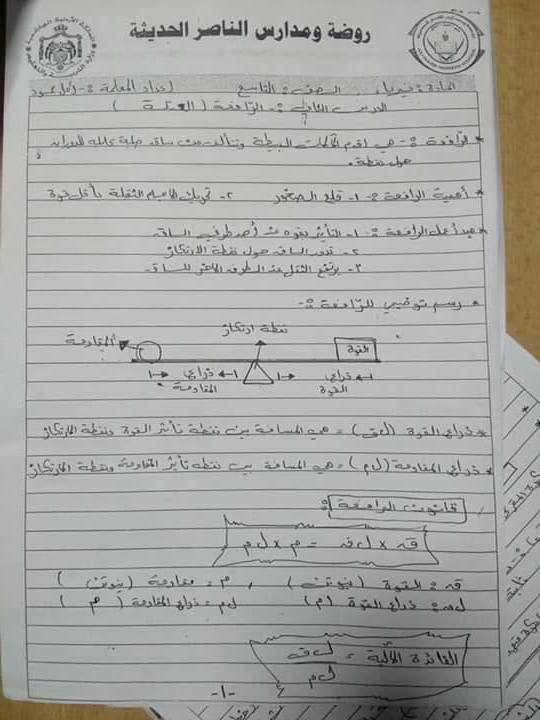 روضة ومدارس الناصر الحديثة
المادة :- فيزياء الصف :- التاسع إعداد المعلمة :- أمل
الدرس الثاني :- الرافعة ( العتلة )
* الرافعة :- هي اقدم الآلات البسيطة وتتألف من ساق صلبة يمكنه الدوران
حول نقطة .
* أهمية الرافعة :- ١- قلع الصخور ٢- تحريك الأجسام الثقيلة بأقل قوة
* مبدأ عمل الرافعة :- ١- التأثير بقوة عند أحد طرفي الساق
٢- تدور الساق حول نقطة الارتكاز
٣- يرتفع الثقل عند الطرف الآخر للساق
* رسم توضيحي للرافعة :-
نقطة ارتكاز
المقاومة
القوة
ذراع المقاومة
ذراع القوة
* ذراع القوة (ل ق) = هي المسافة بين نقطة تأثير القوة ونقطة الارتكاز
* ذراع المقاومة (ل م) = هي المسافة بين نقطة تأثير المقاومة ونقطة الارتكاز
قانون الرافعة :
ق × ل ق = م × ل م
ق = القوة (نيوتن) , م = مقاومة (نيوتن)
ل ق = ذراع القوة (م) ل م = ذراع المقاومة (م)
الفائدة الآلية = ل ق
ل م
-١-